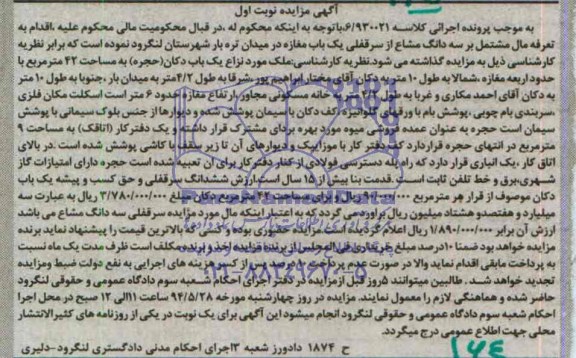 آگهی مزایده نوبت اول
به موجب پرونده اجرائی کلاسه ۶/۹۳۰۰۲۱، باتوجه به اینکه محکوم له ،در قبال محکومیت مالی محکوم علیه ،اقدام به
تعرفه مال مشتمل بر سه دانگ مشاع از سرقفلی یک باب مغازه در میدان تره بار شهرستان لنگرود نموده است که برابر نظریه
کارشناسی ذیل به مزایده گذاشته می شود.نظریه کارشناسی:ملک مورد نزاع یک باب دکان(حجره) به مساحت ۴۲ مترمربع با
حدود اربعه مغازه ،شمالا به طول ۱۰ متر به دکان آقای مختار ابراهیم پور ،شرقا به طول ۴/۲متر به میدان بار ،جنوبا به طول ۱۰ متر
به دکان آقای احمد مکاری و غربا به طول ۴/۲ متر به خانه مسکونی مجاور،ارتفاع مغازه حدود ۶ متر است اسکلت مکان فلزی
سربندی بام چوبی، پوشش بام با ورقهای گالوانیزه ،کف دکان با سیمان پوشش شده و دیوارها از جنس بلوک سیمانی با پوشش
سیمان است حجره به عنوان عمده فروشی میوه مورد بهره برداری مشترک قرار داشته و یک دفتر کار (اتاقک) به مساحت ۹
مترمربع در انتهای حجره قرار دارد کف دفتر کار با موزاییک و دیوارهای آن تا زیر سقف با کاشی پوشش شده است .در بالای
اتاق کار ،یک انباری قرار دارد که راه پله دسترسی فولادی از کنار دفتر کار برای آن تعبیه شده است حجره دارای امتیازات گاز
شهری،برق و خط تلفن ثابت است . قدمت بنا بیش از ۱۵ سال است.ارزش ششدانگ سرقفلی و حق کسب و پیشه یک باب
دکان موصوف از قرار هر مترمربع ۹۰/۰۰۰/۰۰۰ ریال و برای مساحت ۴۲ مترمربع دکان مبلغ ۳/۷۸۰/۰۰۰/۰۰۰ ریال به عبارت سه
میلیارد و هفتصدو هشتاد میلیون ریال برآورد می گردد که به اعتبار اینکه مال مورد مزایده سرقفلی سه دانگ مشاع می باشد
ارزش آن برابر ۱/۸۹۰/۰۰۰/۰۰۰ ریال اعلام گردیده است مزایده حضوری بوده و کسی که بالاترین قیمت را پیشنهاد نماید برنده
مزایده خواهد بود ضمنا ۱۰درصد مبلغ خریداری فی المجلس از برنده مزایده اخذ و برنده مکلف است ظرف مدت یک ماه نسبت
به پرداخت مابقی اقدام نماید والا در صورت عدم پرداخت ۱۰درصد پس از کسر هزینه های اجرایی به نفع دولت ضبط ومزایده
تجدید خواهد شد . طالبین میتوانند ۵روز قبل ازمزایده در دفتر اجرای احکام شعبه سوم دادگاه عمومی و حقوقی لنگرود
حاضر شده و هماهنگی لازم را معمول نمایند. مزایده در روز چهارشنبه مورخه ۹۴/۵/۲۸ ساعت ۱۱الی ۱۲ صبح در محل اجرا
احکام شعبه سوم دادگاه عمومی و حقوقی لنگرود انجام میشود این آگهی برای یک نوبت در یکی از روزنامه های کثیرالانتشار
محلی جهت اطلاع عمومی درج میگردد.
ح ۱۸۷۴ دادورز شعبه ۳اجرای احکام مدنی دادگستری لنگرود-دلیری
۱۶۴